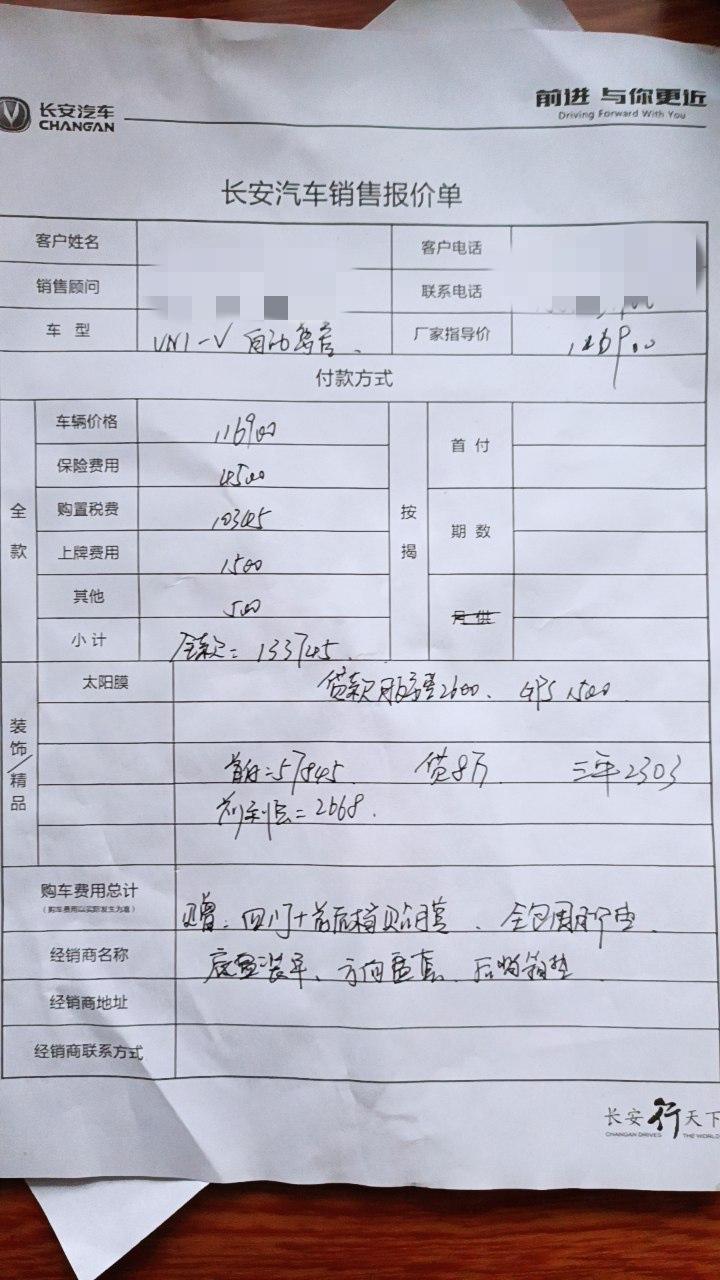 长安汽车
CHANGAN
前进 与你更近
Driving Forward With You
长安汽车销售报价单
客户姓名 客户电话
销售顾问 联系电话
车 型 UNI-V 自动 厂家指导价
付款方式
全款
车辆价格 116900
保险费用 4500
购置税费 10345
上牌费用 1500
其他 500
小计 全款=133745
按揭
首付
期数
月供
装饰/精品
太阳膜 贷款 2600、GPS 1500
首付=57845 贷8万 三年2303
利息=2668.
购车费用总计
(购车费用以实际发生为准)
赠:四门+前后档贴膜、全包围脚垫
经销商名称 底盘装甲、方向盘套、后备箱垫
经销商地址
经销商联系方式
长安行天下
CHANGAN DRIVES THE WORLD